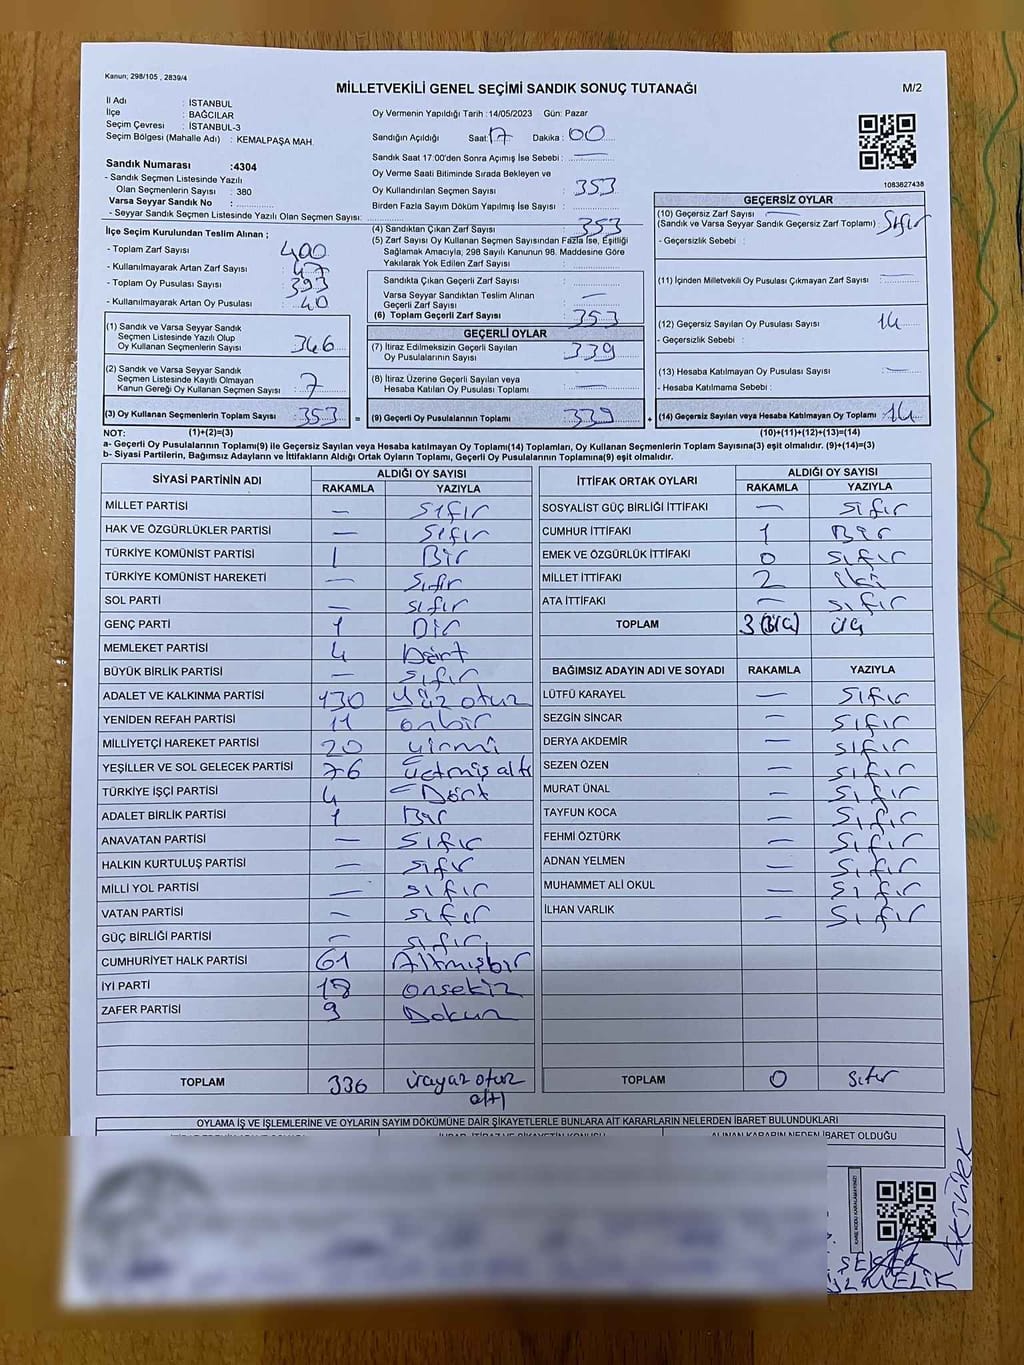 Kanun; 298/105 , 2839/4
MİLLETVEKİLİ GENEL SEÇİMİ SANDIK SONUÇ TUTANAĞI
M/2
İl Adı : İSTANBUL
İlçe : BAĞCILAR
Seçim Çevresi : İSTANBUL-3
Seçim Bölgesi (Mahalle Adı) : KEMALPAŞA MAH.
Oy Vermenin Yapıldığı Tarih :14/05/2023 Gün: Pazar
Sandığın Açıldığı Saat: 17 Dakika : 00
Sandık Saat 17:00'den Sonra Açımış İse Sebebi : —
Oy Verme Saati Bitiminde Sırada Bekleyen ve
Oy Kullandırılan Seçmen Sayısı : 353
Birden Fazla Sayım Döküm Yapılmış İse Sayısı :
1083827438
Sandık Numarası :4304
- Sandık Seçmen Listesinde Yazılı
Olan Seçmenlerin Sayısı : 380
Varsa Seyyar Sandık No :
- Seyyar Sandık Seçmen Listesinde Yazılı Olan Seçmen Sayısı:
İlçe Seçim Kurulundan Teslim Alınan ;
- Toplam Zarf Sayısı : 400
- Kullanılmayarak Artan Zarf Sayısı : 47
- Toplam Oy Pusulası Sayısı : 393
- Kullanılmayarak Artan Oy Pusulası : 40
(1) Sandık ve Varsa Seyyar Sandık
Seçmen Listesinde Yazılı Olup
Oy Kullanan Seçmenlerin Sayısı : 346
(2) Sandık ve Varsa Seyyar Sandık
Seçmen Listesinde Kayıtlı Olmayan
Kanun Gereği Oy Kullanan Seçmen Sayısı : 7
(3) Oy Kullanan Seçmenlerin Toplam Sayısı : 353
(4) Sandıktan Çıkan Zarf Sayısı : 353
(5) Zarf Sayısı Oy Kullanan Seçmen Sayısından Fazla İse, Eşitliği
Sağlamak Amacıyla; 298 Sayılı Kanunun 98. Maddesine Göre
Yakılarak Yok Edilen Zarf Sayısı :
Sandıkta Çıkan Geçerli Zarf Sayısı :
Varsa Seyyar Sandıktan Teslim Alınan
Geçerli Zarf Sayısı : —
(6) Toplam Geçerli Zarf Sayısı : 353
GEÇERLİ OYLAR
(7) İtiraz Edilmeksizin Geçerli Sayılan
Oy Pusulalarının Sayısı : 339
(8) İtiraz Üzerine Geçerli Sayılan veya
Hesaba Katılan Oy Pusulası Toplamı : —
= (9) Geçerli Oy Pusulalarının Toplamı : 339
GEÇERSİZ OYLAR
(10) Geçersiz Zarf Sayısı —
(Sandık ve Varsa Seyyar Sandık Geçersiz Zarf Toplamı) : Sıfır
- Geçersizlik Sebebi :
(11) İçinden Milletvekili Oy Pusulası Çıkmayan Zarf Sayısı : —
(12) Geçersiz Sayılan Oy Pusulası Sayısı : 14
- Geçersizlik Sebebi :
(13) Hesaba Katılmayan Oy Pusulası Sayısı : —
- Hesaba Katılmama Sebebi :
+ (14) Geçersiz Sayılan veya Hesaba Katılmayan Oy Toplamı : 14
NOT: (1)+(2)=(3)
(10)+(11)+(12)+(13)=(14)
a- Geçerli Oy Pusulalarının Toplamı(9) ile Geçersiz Sayılan veya Hesaba katılmayan Oy Toplamı(14) Toplamları, Oy Kullanan Seçmenlerin Toplam Sayısına(3) eşit olmalıdır. (9)+(14)=(3)
b- Siyasi Partilerin, Bağımsız Adayların ve İttifakların Aldığı Ortak Oyların Toplamı, Geçerli Oy Pusulalarının Toplamına(9) eşit olmalıdır.
SİYASİ PARTİNİN ADI ALDIĞI OY SAYISI
RAKAMLA YAZIYLA
MİLLET PARTİSİ — Sıfır
HAK VE ÖZGÜRLÜKLER PARTİSİ — Sıfır
TÜRKİYE KOMÜNİST PARTİSİ 1 Bir
TÜRKİYE KOMÜNİST HAREKETİ — Sıfır
SOL PARTİ — sıfır
GENÇ PARTİ 1 Bir
MEMLEKET PARTİSİ 4 Dört
BÜYÜK BİRLİK PARTİSİ — sıfır
ADALET VE KALKINMA PARTİSİ 130 Yüz otuz
YENİDEN REFAH PARTİSİ 11 onbir
MİLLİYETÇİ HAREKET PARTİSİ 20 yirmi
YEŞİLLER VE SOL GELECEK PARTİSİ 76
TÜRKİYE İŞÇİ PARTİSİ 4 Dört
ADALET BİRLİK PARTİSİ 1 Bir
ANAVATAN PARTİSİ — Sıfır
HALKIN KURTULUŞ PARTİSİ — sıfır
MİLLİ YOL PARTİSİ — sıfır
VATAN PARTİSİ — sıfır
GÜÇ BİRLİĞİ PARTİSİ — sıfır
CUMHURİYET HALK PARTİSİ 61 Altmışbir
İYİ PARTİ 18 onsekiz
ZAFER PARTİSİ 9 Dokuz
TOPLAM 336 üçyüz otuz
altı
İTTİFAK ORTAK OYLARI ALDIĞI OY SAYISI
RAKAMLA YAZIYLA
SOSYALİST GÜÇ BİRLİĞİ İTTİFAKI — sıfır
CUMHUR İTTİFAKI 1 Bir
EMEK VE ÖZGÜRLÜK İTTİFAKI 0 sıfır
MİLLET İTTİFAKI 2 iki
ATA İTTİFAKI — sıfır
TOPLAM 3 üç
BAĞIMSIZ ADAYIN ADI VE SOYADI RAKAMLA YAZIYLA
LÜTFÜ KARAYEL — sıfır
SEZGİN SİNCAR — sıfır
DERYA AKDEMİR — sıfır
SEZEN ÖZEN — sıfır
MURAT ÜNAL — sıfır
TAYFUN KOCA — sıfır
FEHMİ ÖZTÜRK — sıfır
ADNAN YELMEN — sıfır
MUHAMMET ALİ OKUL — sıfır
İLHAN VARLIK — sıfır
TOPLAM 0 sıfır
OYLAMA İŞ VE İŞLEMLERİNE VE OYLARIN SAYIM DÖKÜMÜNE DAİR ŞİKAYETLERLE BUNLARA AİT KARARLARIN NELERDEN İBARET BULUNDUKLARI
ALINAN KARARIN NEDEN İBARET OLDUĞU
KARE KODU KARALAMAYINIZ!
AKTÜRK
MELİK